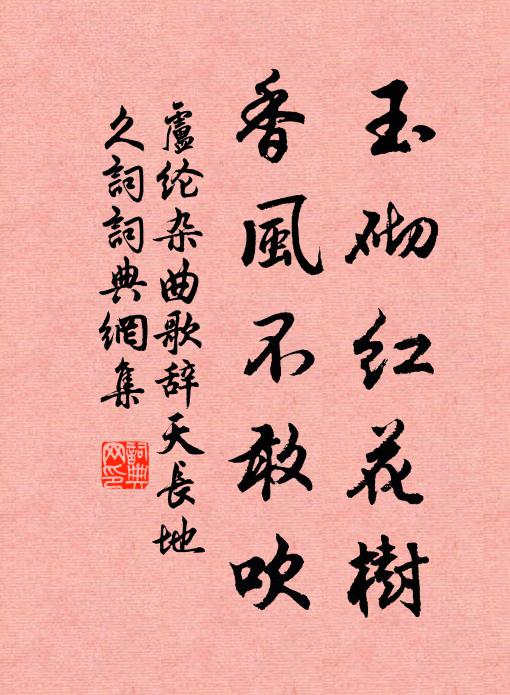 玉砌红花樹
香風不敢吹
盧纶杂曲歌辞天長地
久詞詞典網集
詞典
网印